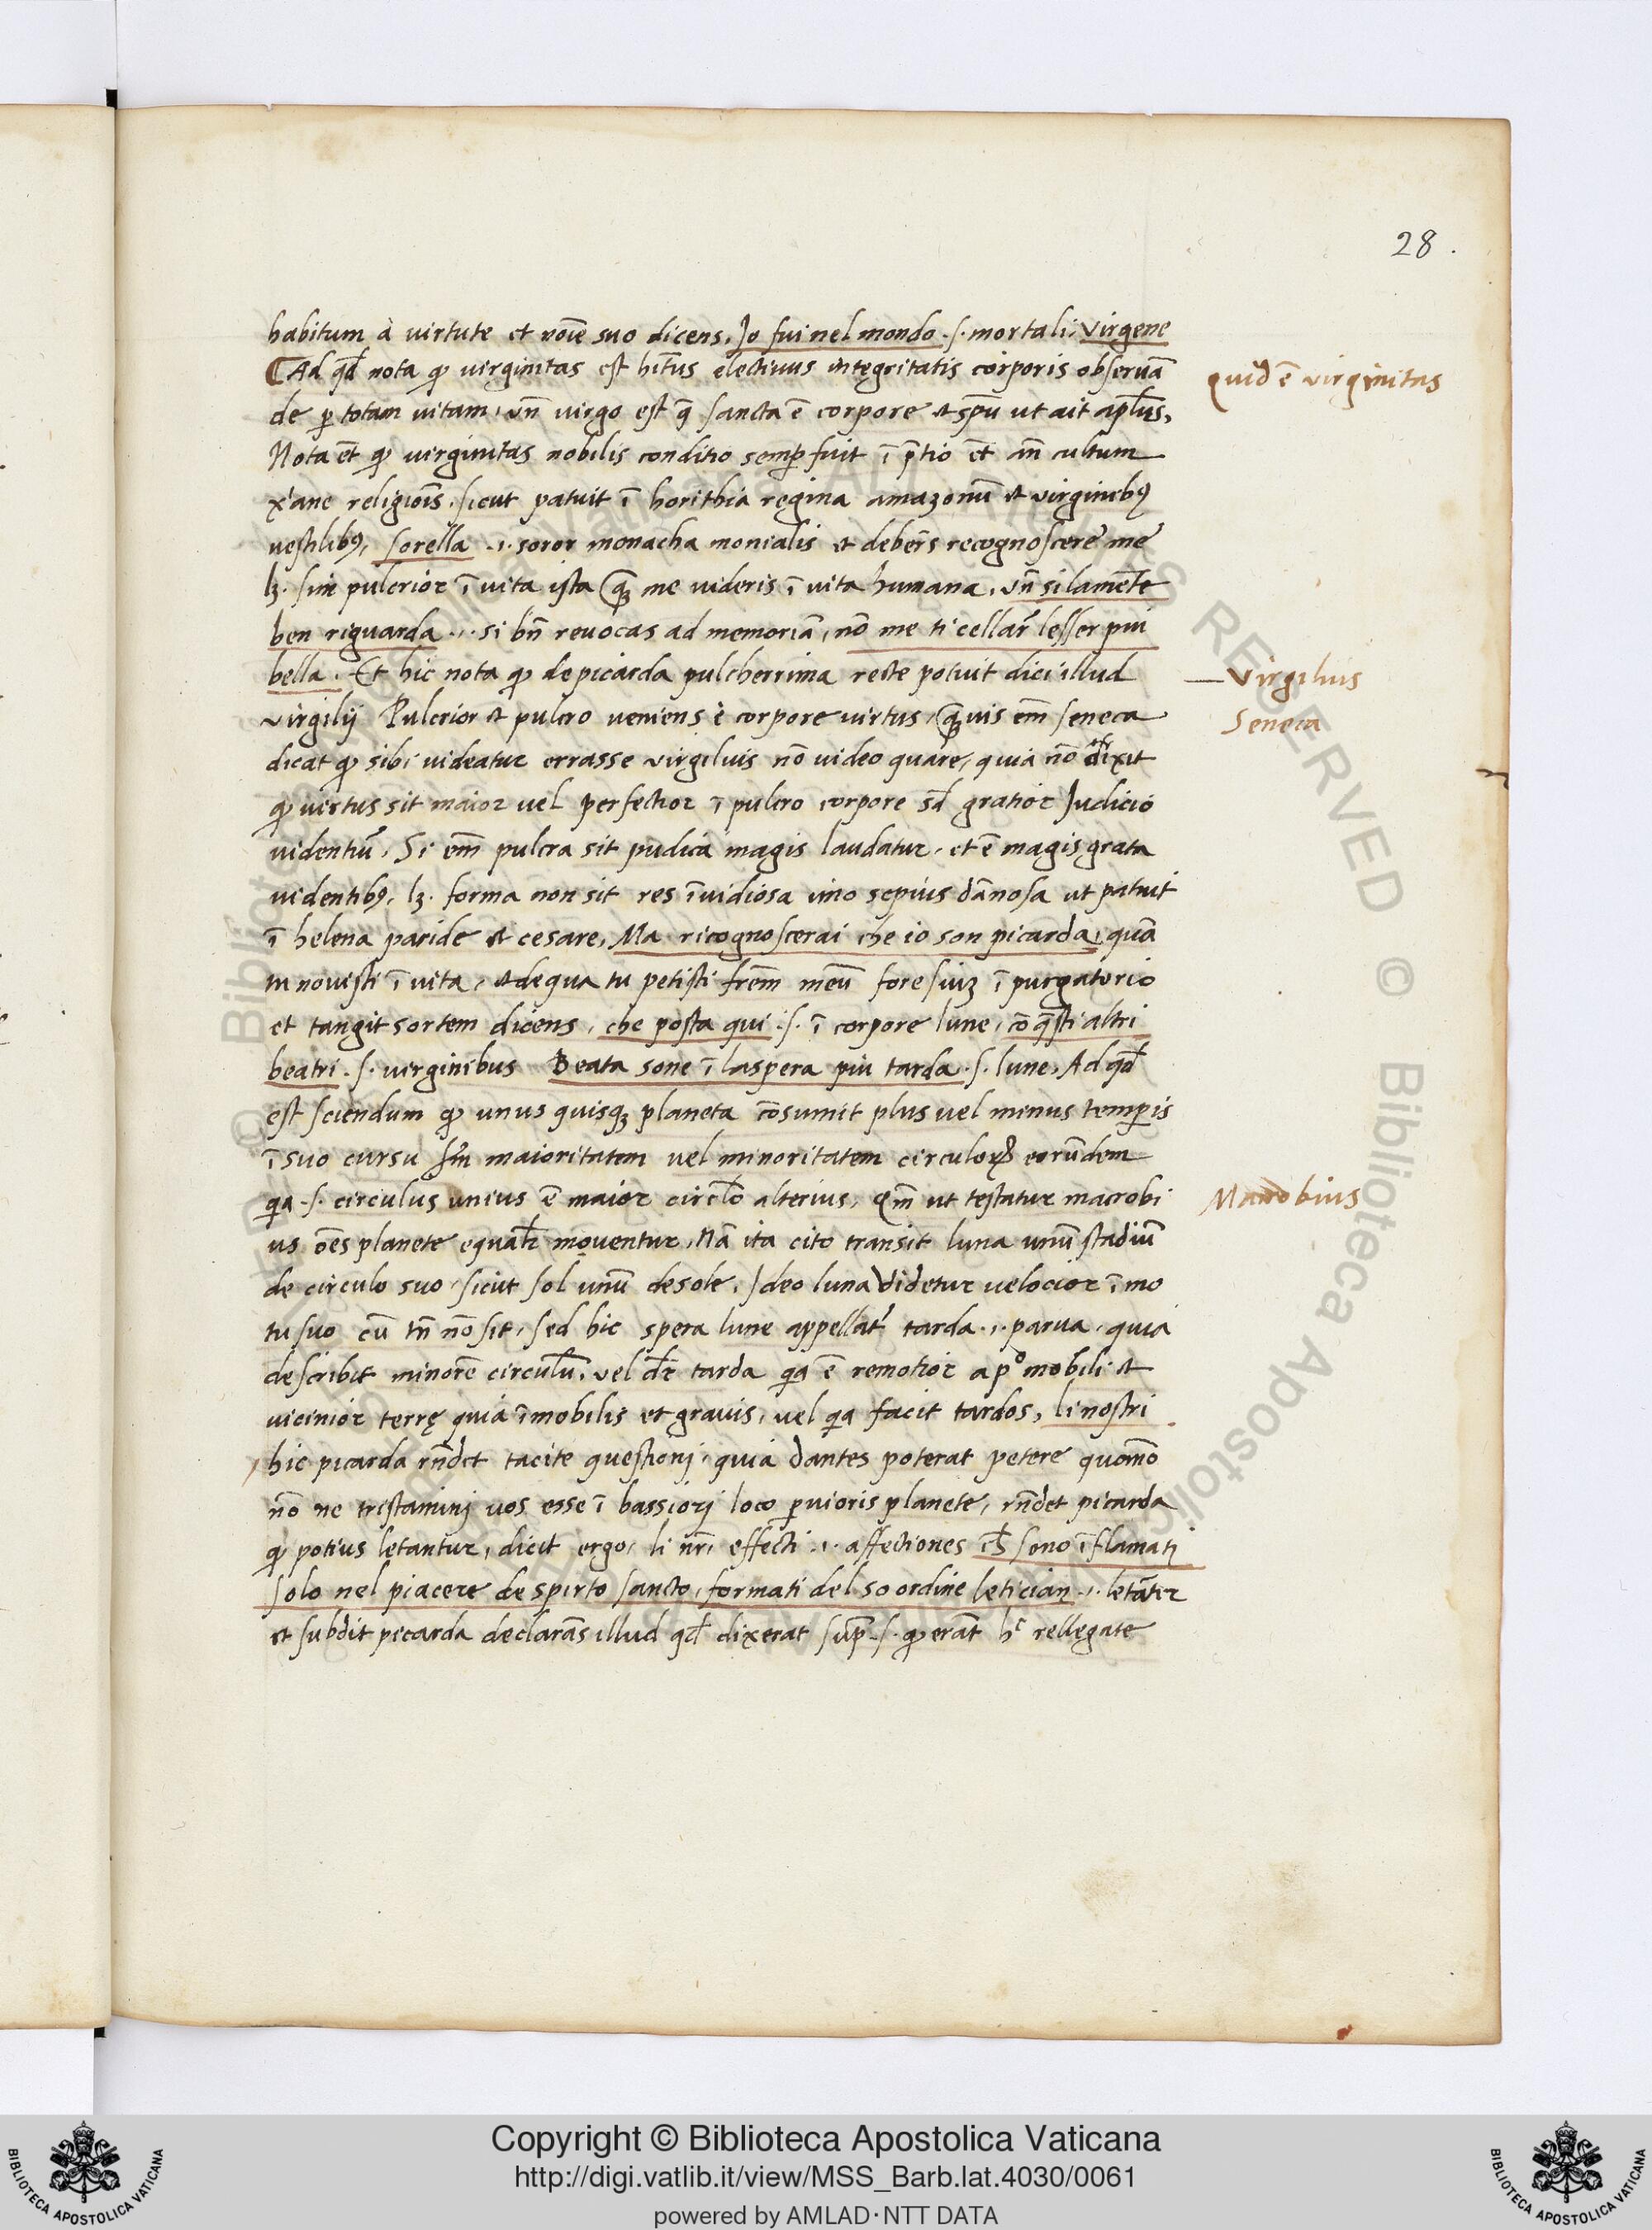 28.
habitum à virtute et noīe suo dicens, Jo fui nel mondo .s. mortali, virgene
Ad qd̄ nota ꝙ virginitas est hītus electiuus integritatis corporis obseruā
quid ē virginitas
de ꝑ totam uitam, vn̄ virgo est q̄ sancta ē corpore et sp̄u ut ait apl̄us,
Nota ēt ꝙ virginitas nobilis conditio semꝑ fuit ī p̄tio ēt an̄ cultum
x̓ane religiōis, sicut patuit ī horithia regina amazonū et virginibꝰ
uestilibꝰ, sorella .i. soror monacha monialis et debēs recognoscere me
lꝫ. sim pulcrior ī uita ista qꝫ me uideris ī uita humana, vn̄ si la mēte
ben riguarda .i. si bn̄ reuocas ad memoriā, nō me ti cellar̄ lesser piu
bella. Et hic nota ꝙ de picarda pulcherrima recte potuit dici illud
Virgilius
virgilij Pulcrior et pulcro ueniens è corpore virtus, qꝫuis em̄ seneca
Seneca
dicat ꝙ sibi uideatur errasse virgilius nō uideo quare, quia nō dixit
ꝙ virtus sit maior uel perfectior ī pulcro corpore sd̄ gratior Judicio
uidentiū, Si em̄ pulcra sit pudica magis laudatur, et ē magis grata
uidentibꝰ, lꝫ. forma non sit res īuidiosa imo sepius dānosa ut patuit
ī helena paride et cesare, Ma ricognoscerai che io son picarda, quā
tu nouisti ī uita, et de qua tu petisti frēm meū fore siuꝫ ī purgatorio
et tangit sortem dicens, che posta qui .s. ī corpore lune, cō q̄sti altri
beatri .s. virginibus Beata sone ī la spera piu tarda .s. lune, Ad qd̄
est sciendum ꝙ unus quisqꝫ planeta cōsumit plus uel minus temꝑis
ī suo cursu sm̄ maioritatem uel minoritatem circuloꝝ eorūdem
qa .s. circulus unius ē maior circl̄o alterius, Qm̄ ut testatur macrobi
Macrobius
us ōes planete equal̄r mouentur, Nā ita cito transit luna unū stadiū
de circulo suo, sicut sol unū de sole, Ideo luna videtur uelocior ī mo
tu suo cū tn̄ nō sit, sed hic spera lune appellat̄ tarda .i. parua, quia
describit minorē circulū, vel dr̄ tarda qa ē remotior a pº mobili et
uicinior terrę quia īmobilis et grauis, vel qa facit tardos, li nostri
hic picarda rn̄det tacite questionj, quia dantes poterat petere quomō
nō ne tristaminj uos esse ī bassiorj loco ꝑuioris planete, rn̄det picarda
ꝙ potius letantur, dicit ergo, li nr̄i effecti .i. affectiones ch̄ sono īflamatj
solo nel piacere de spirto sancto, formati del so ordine letician .i. letātr
et subdit picarda declarās illud qd̄ dixerat sup̄ .s. ꝙ erāt hͨ rellegate
Copyright © Biblioteca Apostolica Vaticana
http://digi.vatlib.it/view/MSS_Barb.lat.4030/0061
powered by AMLAD·NTT DATA